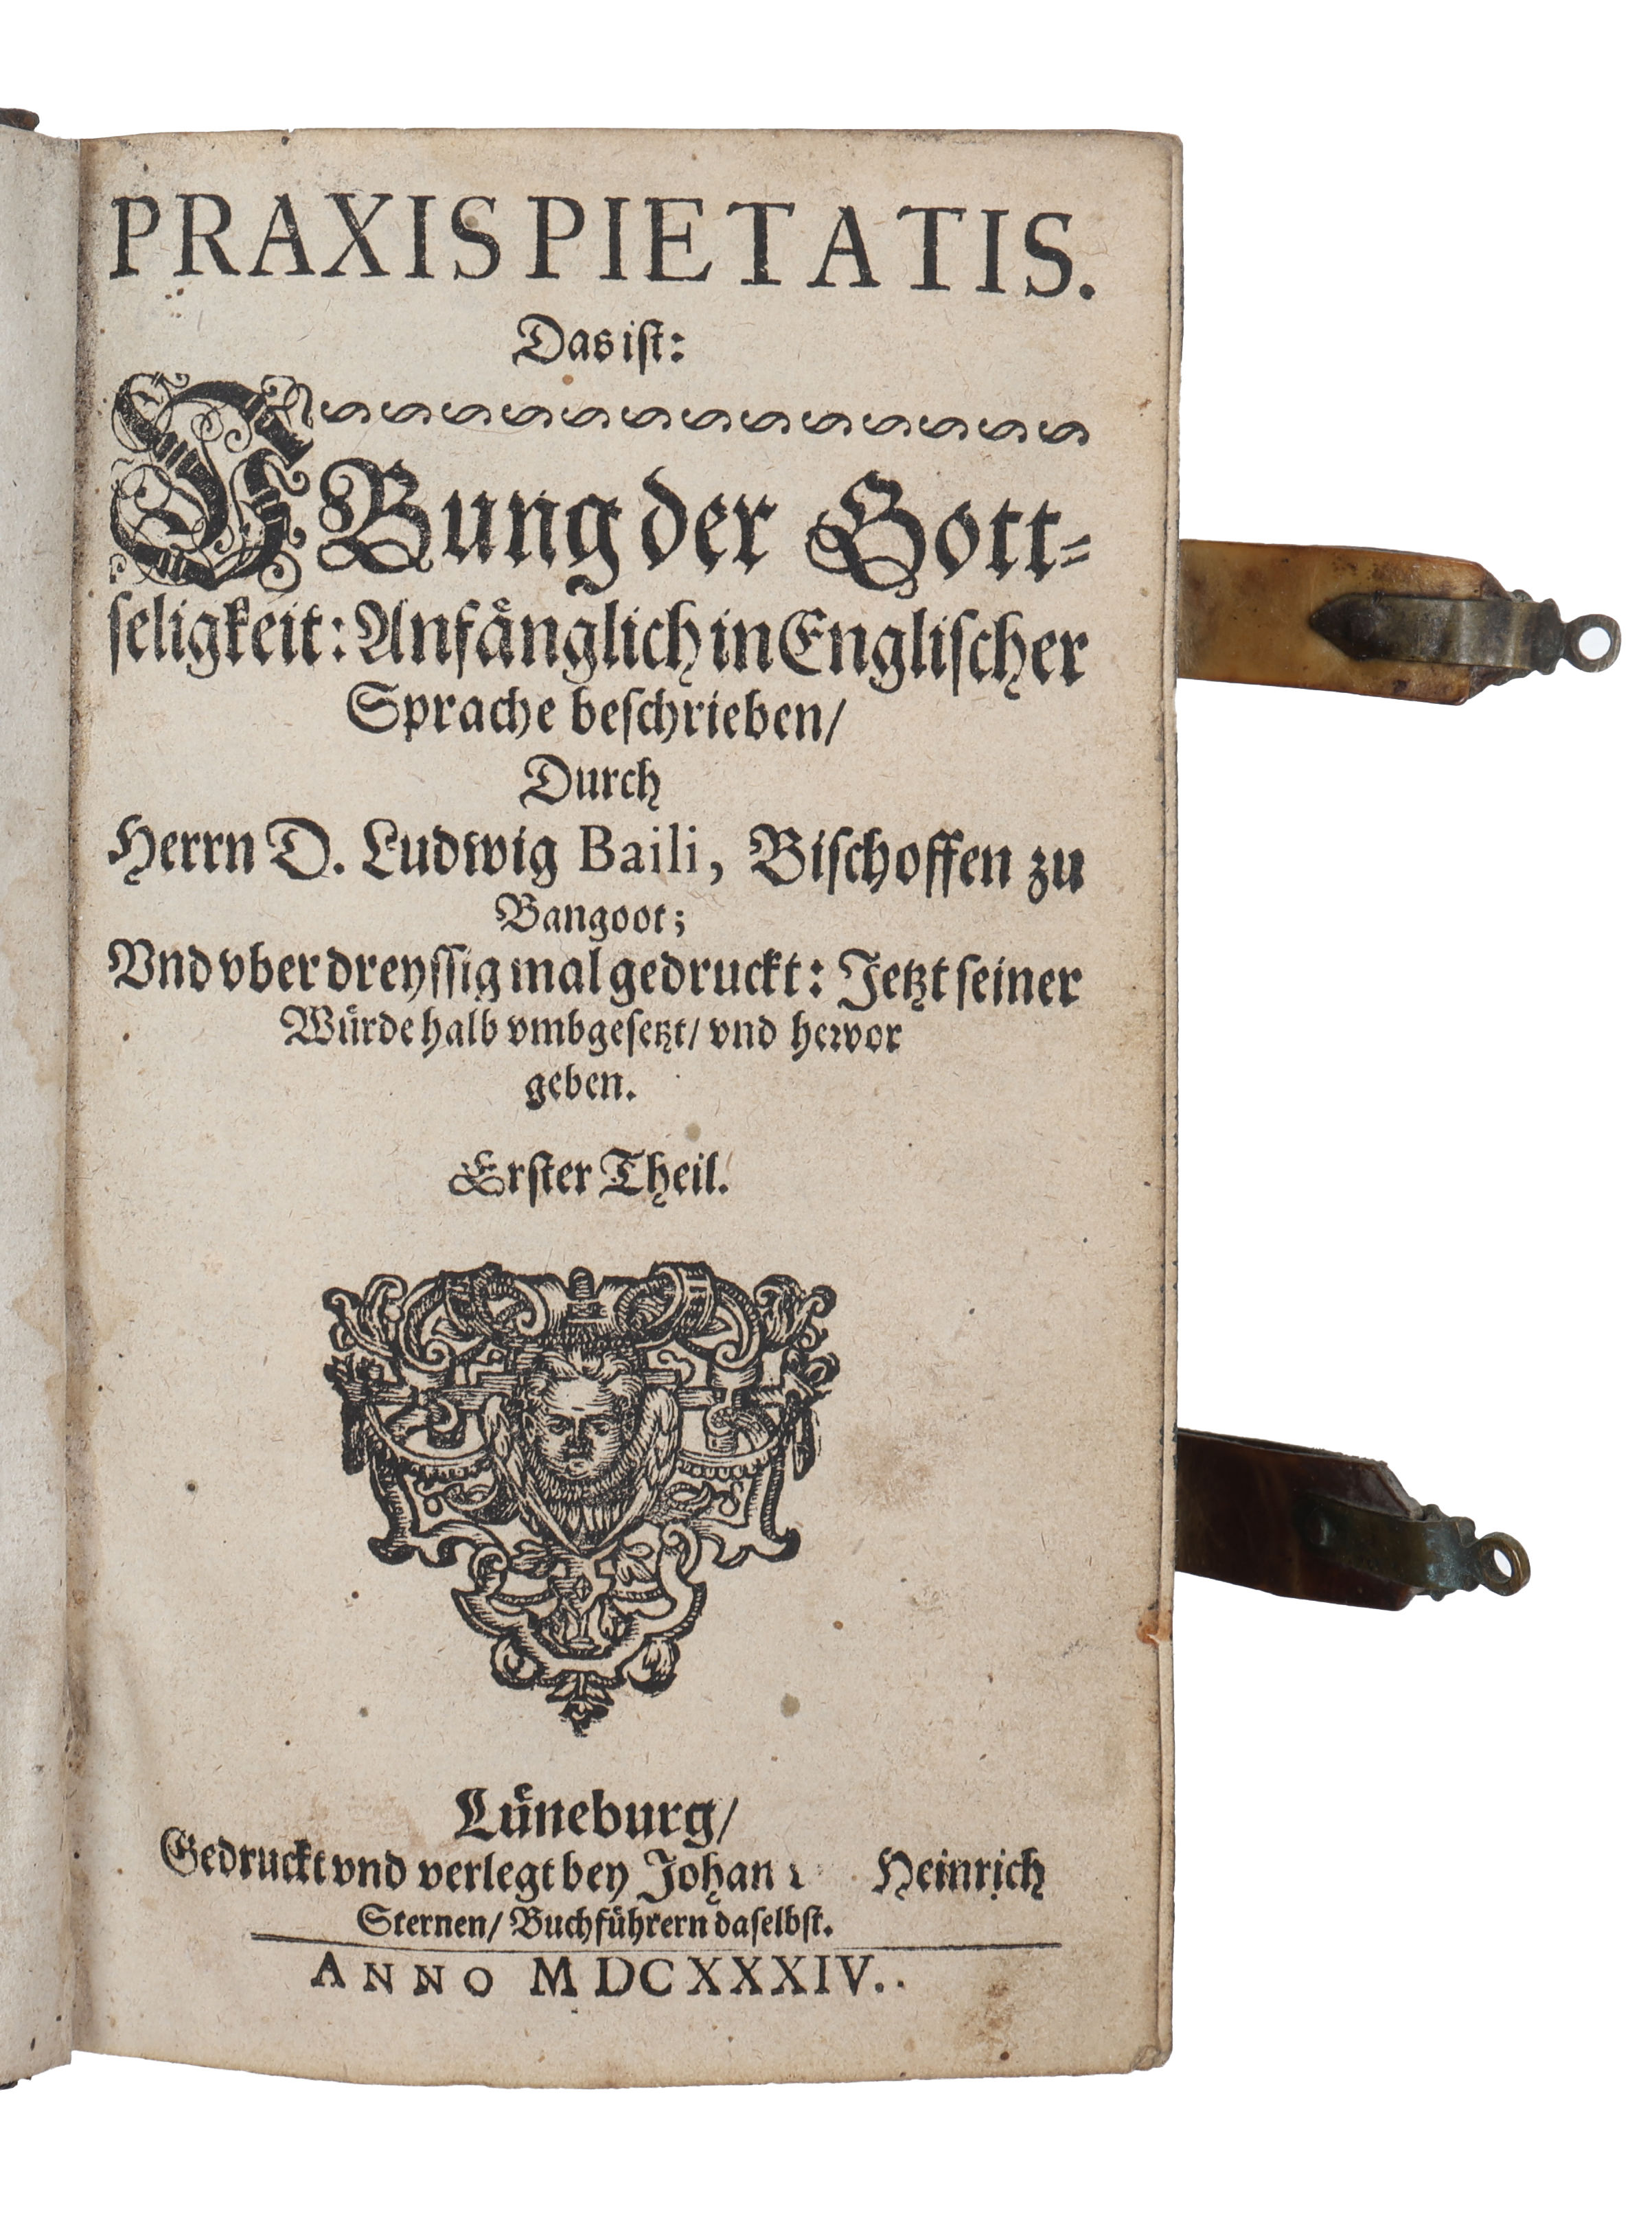 PRAXIS PIETATIS.
Das ist:
VBung der Gott-
seligkeit: Anfånglich in Englischer
Sprache beschrieben/
Durch
Herrn D. Ludwig Baili, Bischoffen zu
Bangoot;
Vnd vber dreyssig mal gedruckt: Jetzt seiner
Wůrde halb vmbgesetzt/ vnd hervor
geben.
Erster Theil.
Lůneburg/
Gedruckt vnd verlegt bey Johan Heinrich
Sternen/ Buchfůhrern daselbst.
ANNO MDCXXXIV.